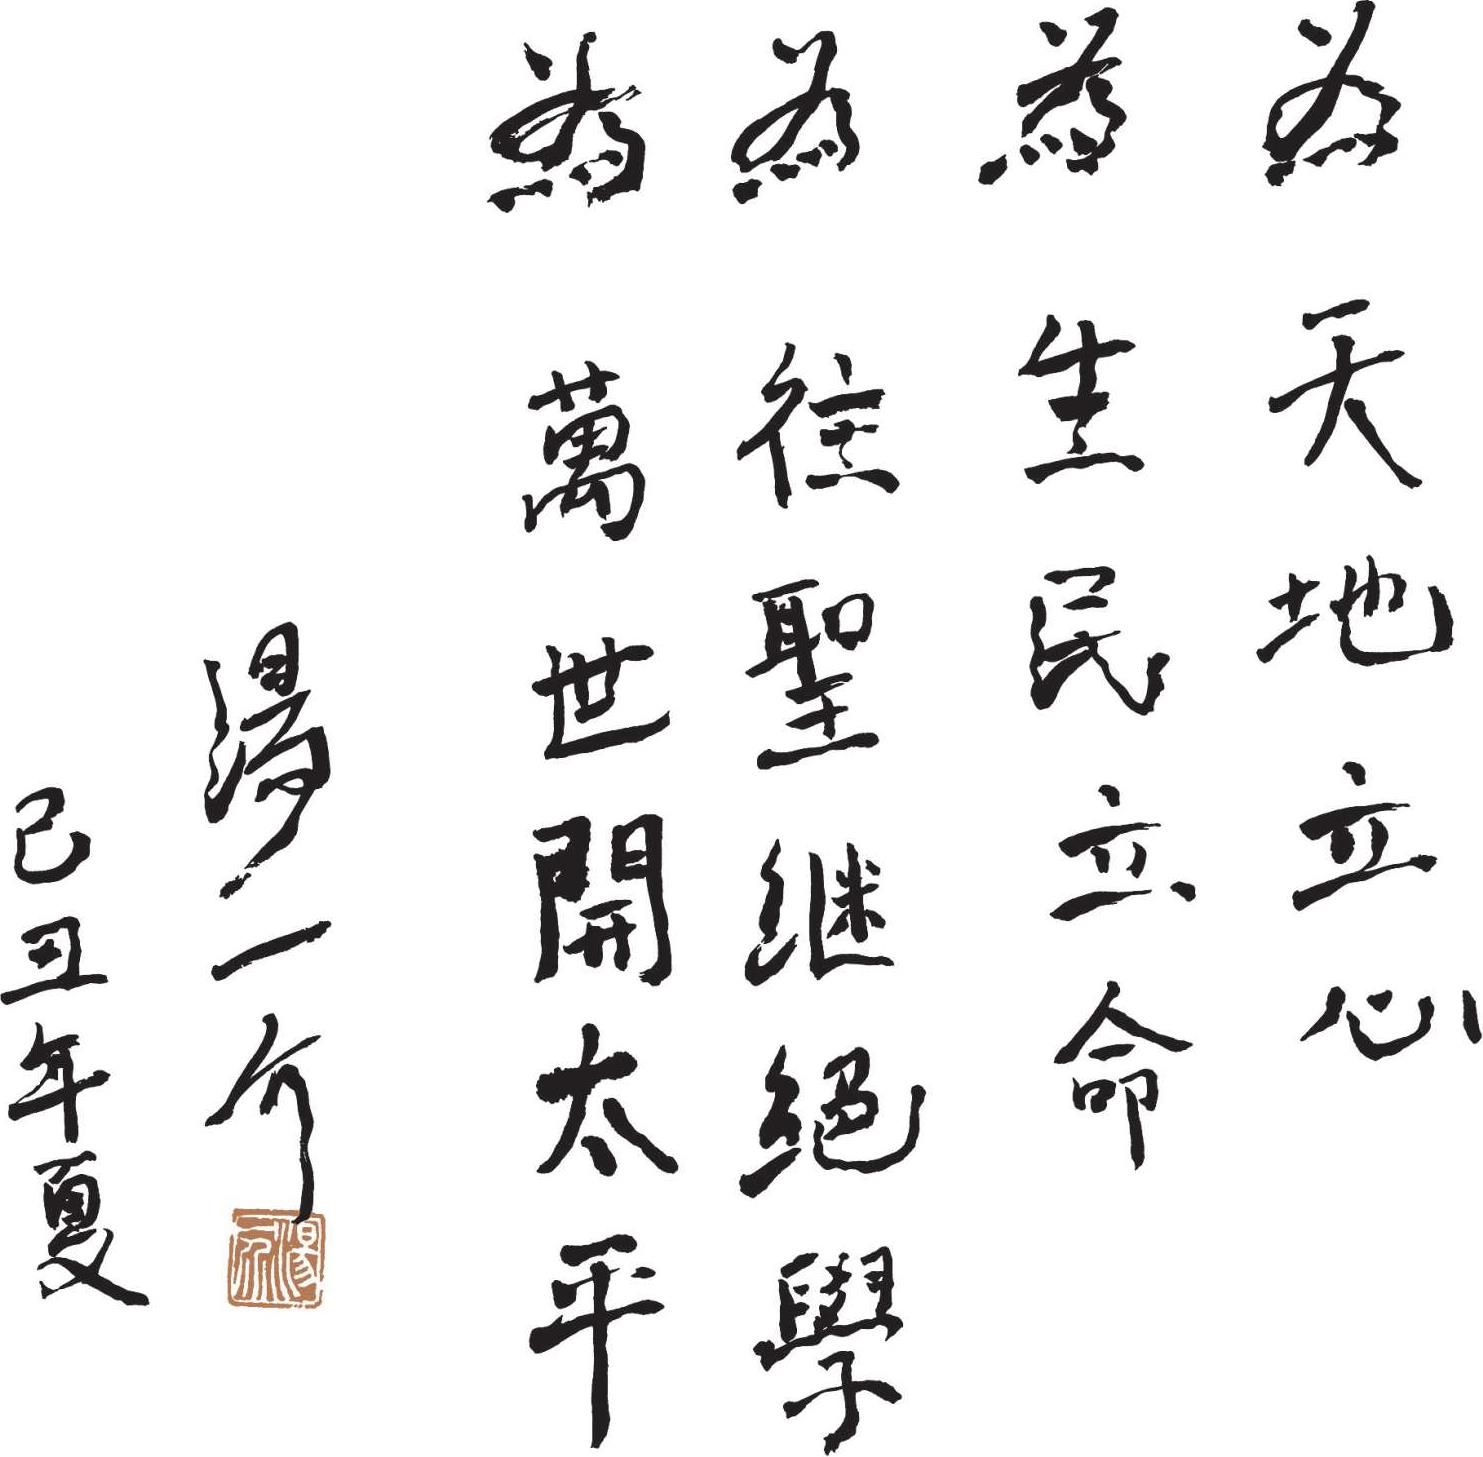 為天地立心
為生民立命
為往聖继絕學
為萬世開太平
湯一介
己丑年夏